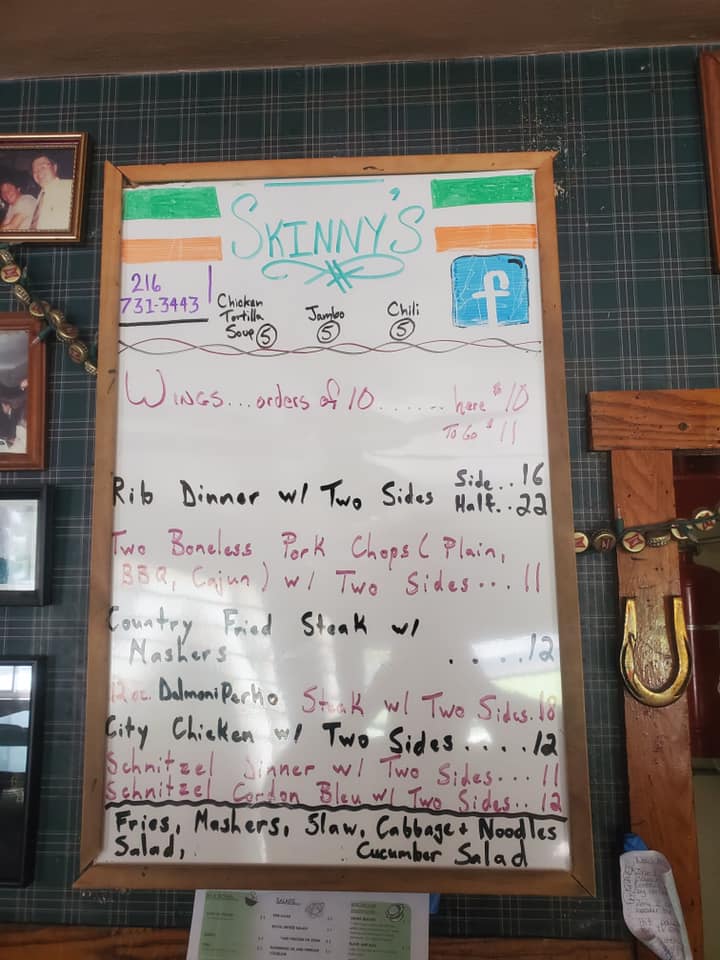 SKINNY'S
f
216
731-3443
Chicken
Tortilla
Soup 5
Jambo
5
Chili
5
Wings...orders of 10....... here $10
To Go $11
Rib Dinner w/ Two Sides Side..16
Half..22
Two Boneless Pork Chops (Plain,
BBQ, Cajun) w/ Two Sides... 11
Country Fried Steak w/
Mashers ....12
12 oz. DalmoniPerko Steak w/ Two Sides.18
City Chicken w/ Two Sides....12
Schnitzel Dinner w/ Two Sides... 11
Schnitzel Cordon Bleu w/ Two Sides.. 12
Fries, Mashers, Slaw, Cabbage + Noodles
Salad, Cucumber Salad
SALADS